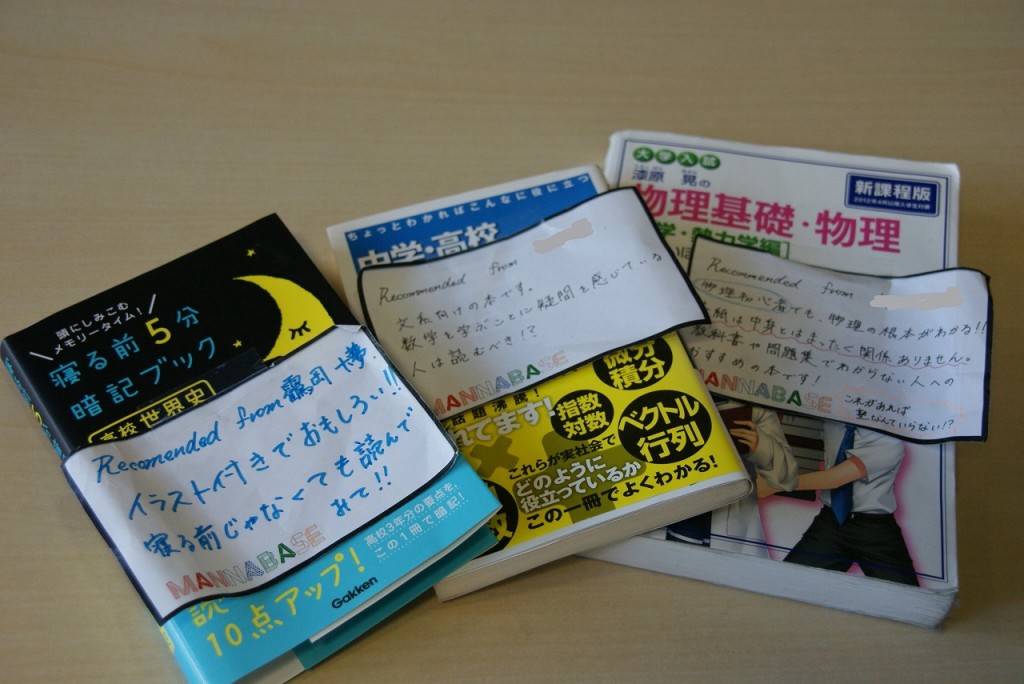 頭にしみこむ
メモリータイム!
寝る前5分
暗記ブック
高校世界史
Recomended from 鶴岡
イラスト付きでおもしろい!!
寝る前じゃなくても読んで
みて!!
MANNABASE
高校3年分の要点を、
この1冊で暗記!
読
10点アップ!
Gakken
ちょっとわかればこんなに役に立つ
中学・高校
Recommended from
文系向けの本です。
数学を学ぶことに疑問を感じている
人は読むべき!?
MANNABASE
微分
積分
れてます!
指数
対数
ベクトル
行列
これらが実社会で
どのように
役立っているか
この一冊でよくわかる!
大学入試
漆原 晃の
物理基礎・物理
学・熱力学編
新課程版
2012年4月以降入学生対象
Recommended from
物理初心者でも、物理の根本がわかる!!
表紙は中身とはまったく関係ありません。
教科書や問題集でわからない人への
おすすめの本です!
MANNABASE
これがあれば
塾なんていらない!?